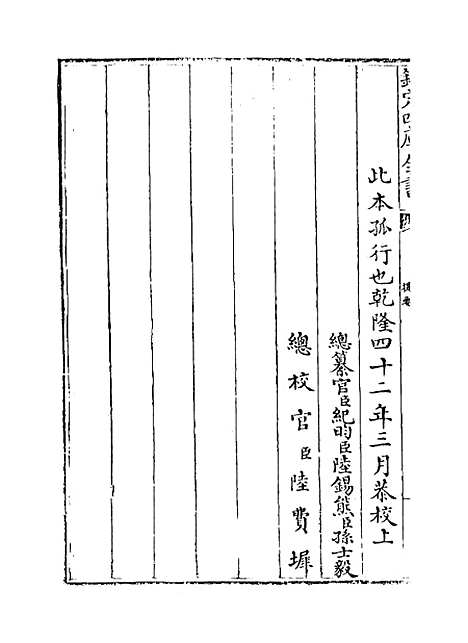 欽定四庫全書
提要
此本孤行也乾隆四十二年三月恭校上
總纂官臣紀昀臣陸錫熊臣孫士毅
總校官臣陸費墀